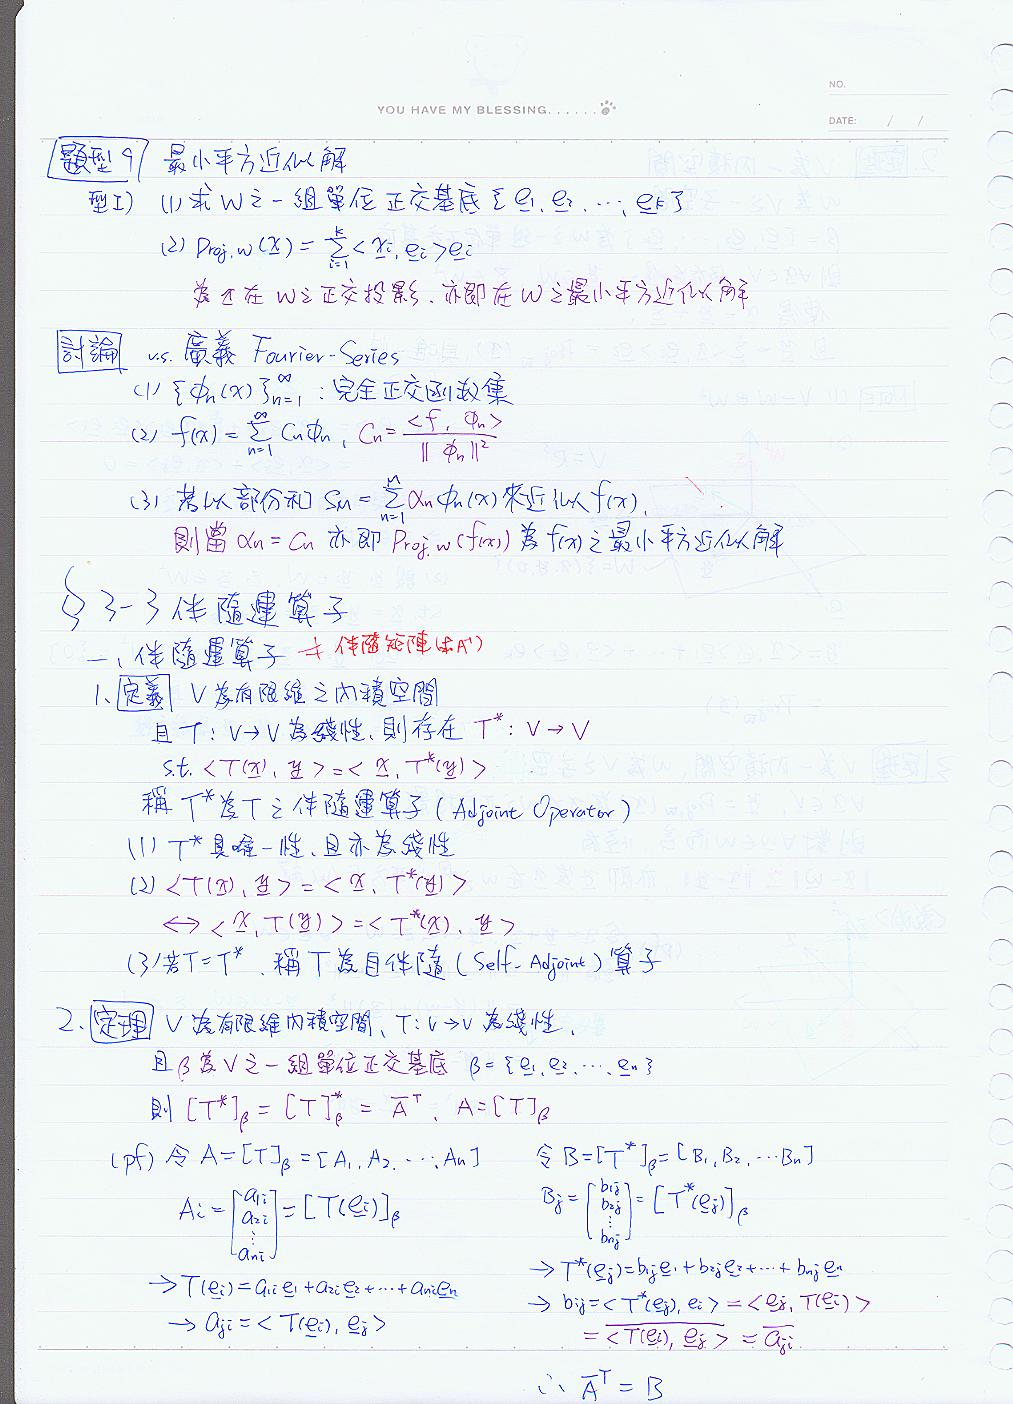 NO.
YOU HAVE MY BLESSING......
DATE: / /
題型9 最小平方近似解
型I) (1) 求W之一組單位正交基底 {e̲₁, e̲₂, …, e̲ₖ}
(2) Proj.w(x̲) = Σᵢ₌₁ᵏ <x̲ᵢ, e̲ᵢ>e̲ᵢ
為x̲在W之正交投影、亦即在W之最小平方近似解
討論 v.s. 廣義 Fourier-Series
(1) {ϕₙ(x)}ₙ₌₁^∞ : 完全正交函數集
(2) f(x) = Σₙ₌₁^∞ Cₙϕₙ, Cₙ = <f, ϕₙ> / ‖ϕₙ‖²
(3) 若以部份和 Sₘ = Σₙ₌₁ᴹ αₙϕₙ(x) 來近似f(x),
則當 αₙ = Cₙ 亦即 Proj.w(f(x)) 為f(x)之最小平方近似解
§ 3-3 伴隨運算子
一、伴隨運算子 ≠ 伴隨矩陣(求A⁻¹)
1、定義 V為有限維之內積空間
且T: V→V 為線性、則存在 T*: V→V
s.t. <T(x̲), y̲> = <x̲, T*(y̲)>
稱T*為T之伴隨運算子(Adjoint Operator)
(1) T*具唯一性、且亦為線性
(2) <T(x̲), y̲> = <x̲, T*(y̲)>
↔ <x̲, T(y̲)> = <T*(x̲), y̲>
(3) 若T=T*、稱T為自伴隨(Self-Adjoint)算子
2、定理 V為有限維內積空間、T: V→V 為線性,
且β為V之一組單位正交基底 β = {e̲₁, e̲₂, …, e̲ₙ}
則 [T*]β = [T]β* = A̅ᵀ, A = [T]β
(pf) 令 A = [T]β = [A₁, A₂, …, Aₙ] 令 B = [T*]β = [B₁, B₂, …Bₙ]
Aᵢ = [a₁ᵢ a₂ᵢ ⋮ aₙᵢ] = [T(e̲ᵢ)]β Bⱼ = [b₁ⱼ b₂ⱼ ⋮ bₙⱼ] = [T*(e̲ⱼ)]β
→ T(e̲ᵢ) = a₁ᵢe̲₁ + a₂ᵢe̲₂ + … + aₙᵢe̲ₙ → T*(e̲ⱼ) = b₁ⱼe̲₁ + b₂ⱼe̲₂ + … + bₙⱼe̲ₙ
→ aⱼᵢ = <T(e̲ᵢ), e̲ⱼ> → bᵢⱼ = <T*(e̲ⱼ), eᵢ> = <e̲ⱼ, T(e̲ᵢ)>
= \overline{<T(e̲ᵢ), e̲ⱼ>} = \overline{aⱼᵢ}
∴ A̅ᵀ = B